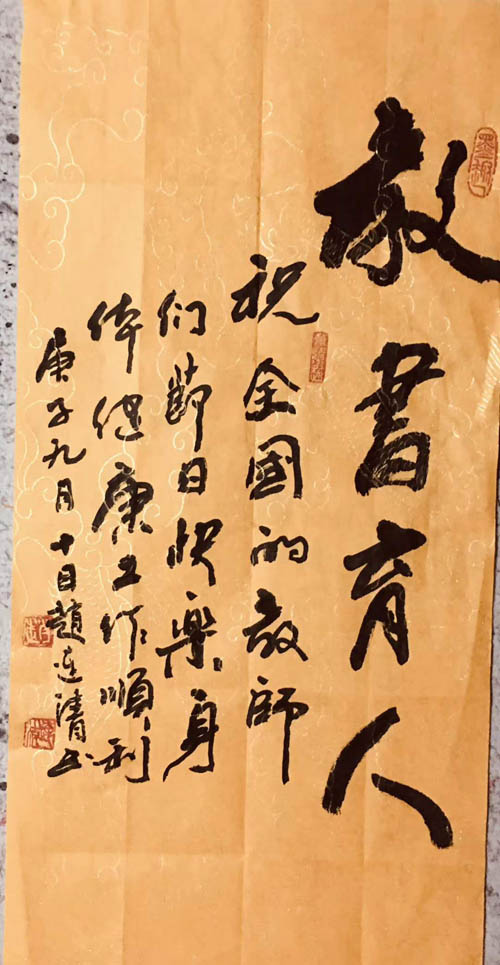 教書育人
祝全國的教師
们節日快樂身
体健康工作順利
庚子九月十日趙連清书